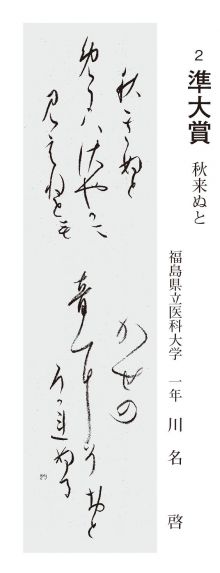 2 準大賞 秋来ぬと
福島県立医科大学 一年 川名 啓
秋きぬと
めにハさやかに
見えねとも
かせの
音にそおと
ろかれぬる